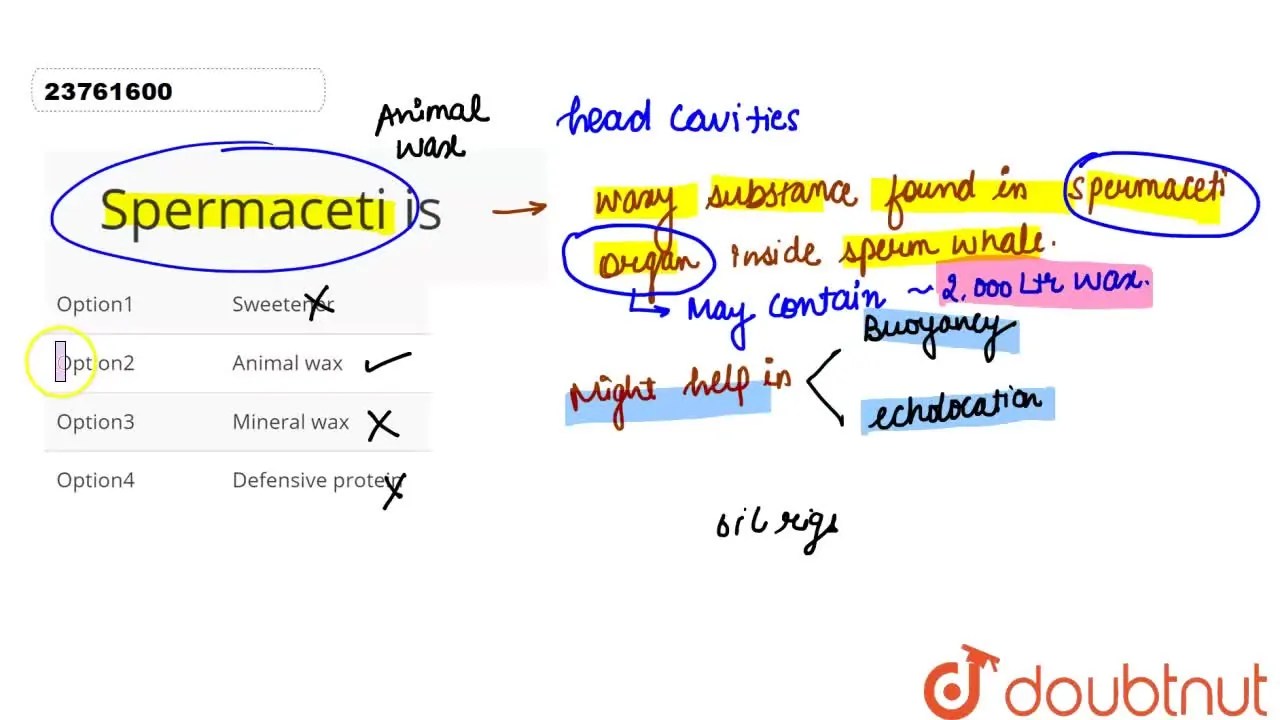 23761600
Animal
wax
head cavities
Spermaceti is
waxy substance found in spermaceti
organ inside sperm whale.
May contain ~ 2,000 Ltr wax.
Option1 Sweetener
Option2 Animal wax
Option3 Mineral wax
Option4 Defensive protein
Buoyancy
Might help in
echolocation
oil rigs
doubtnut